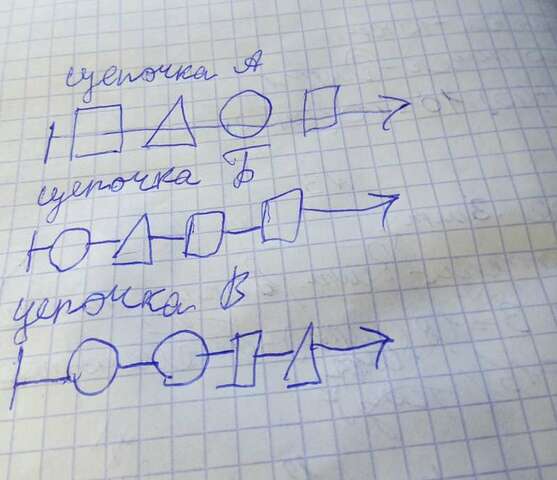 цепочка А
цепочка Б
цепочка В